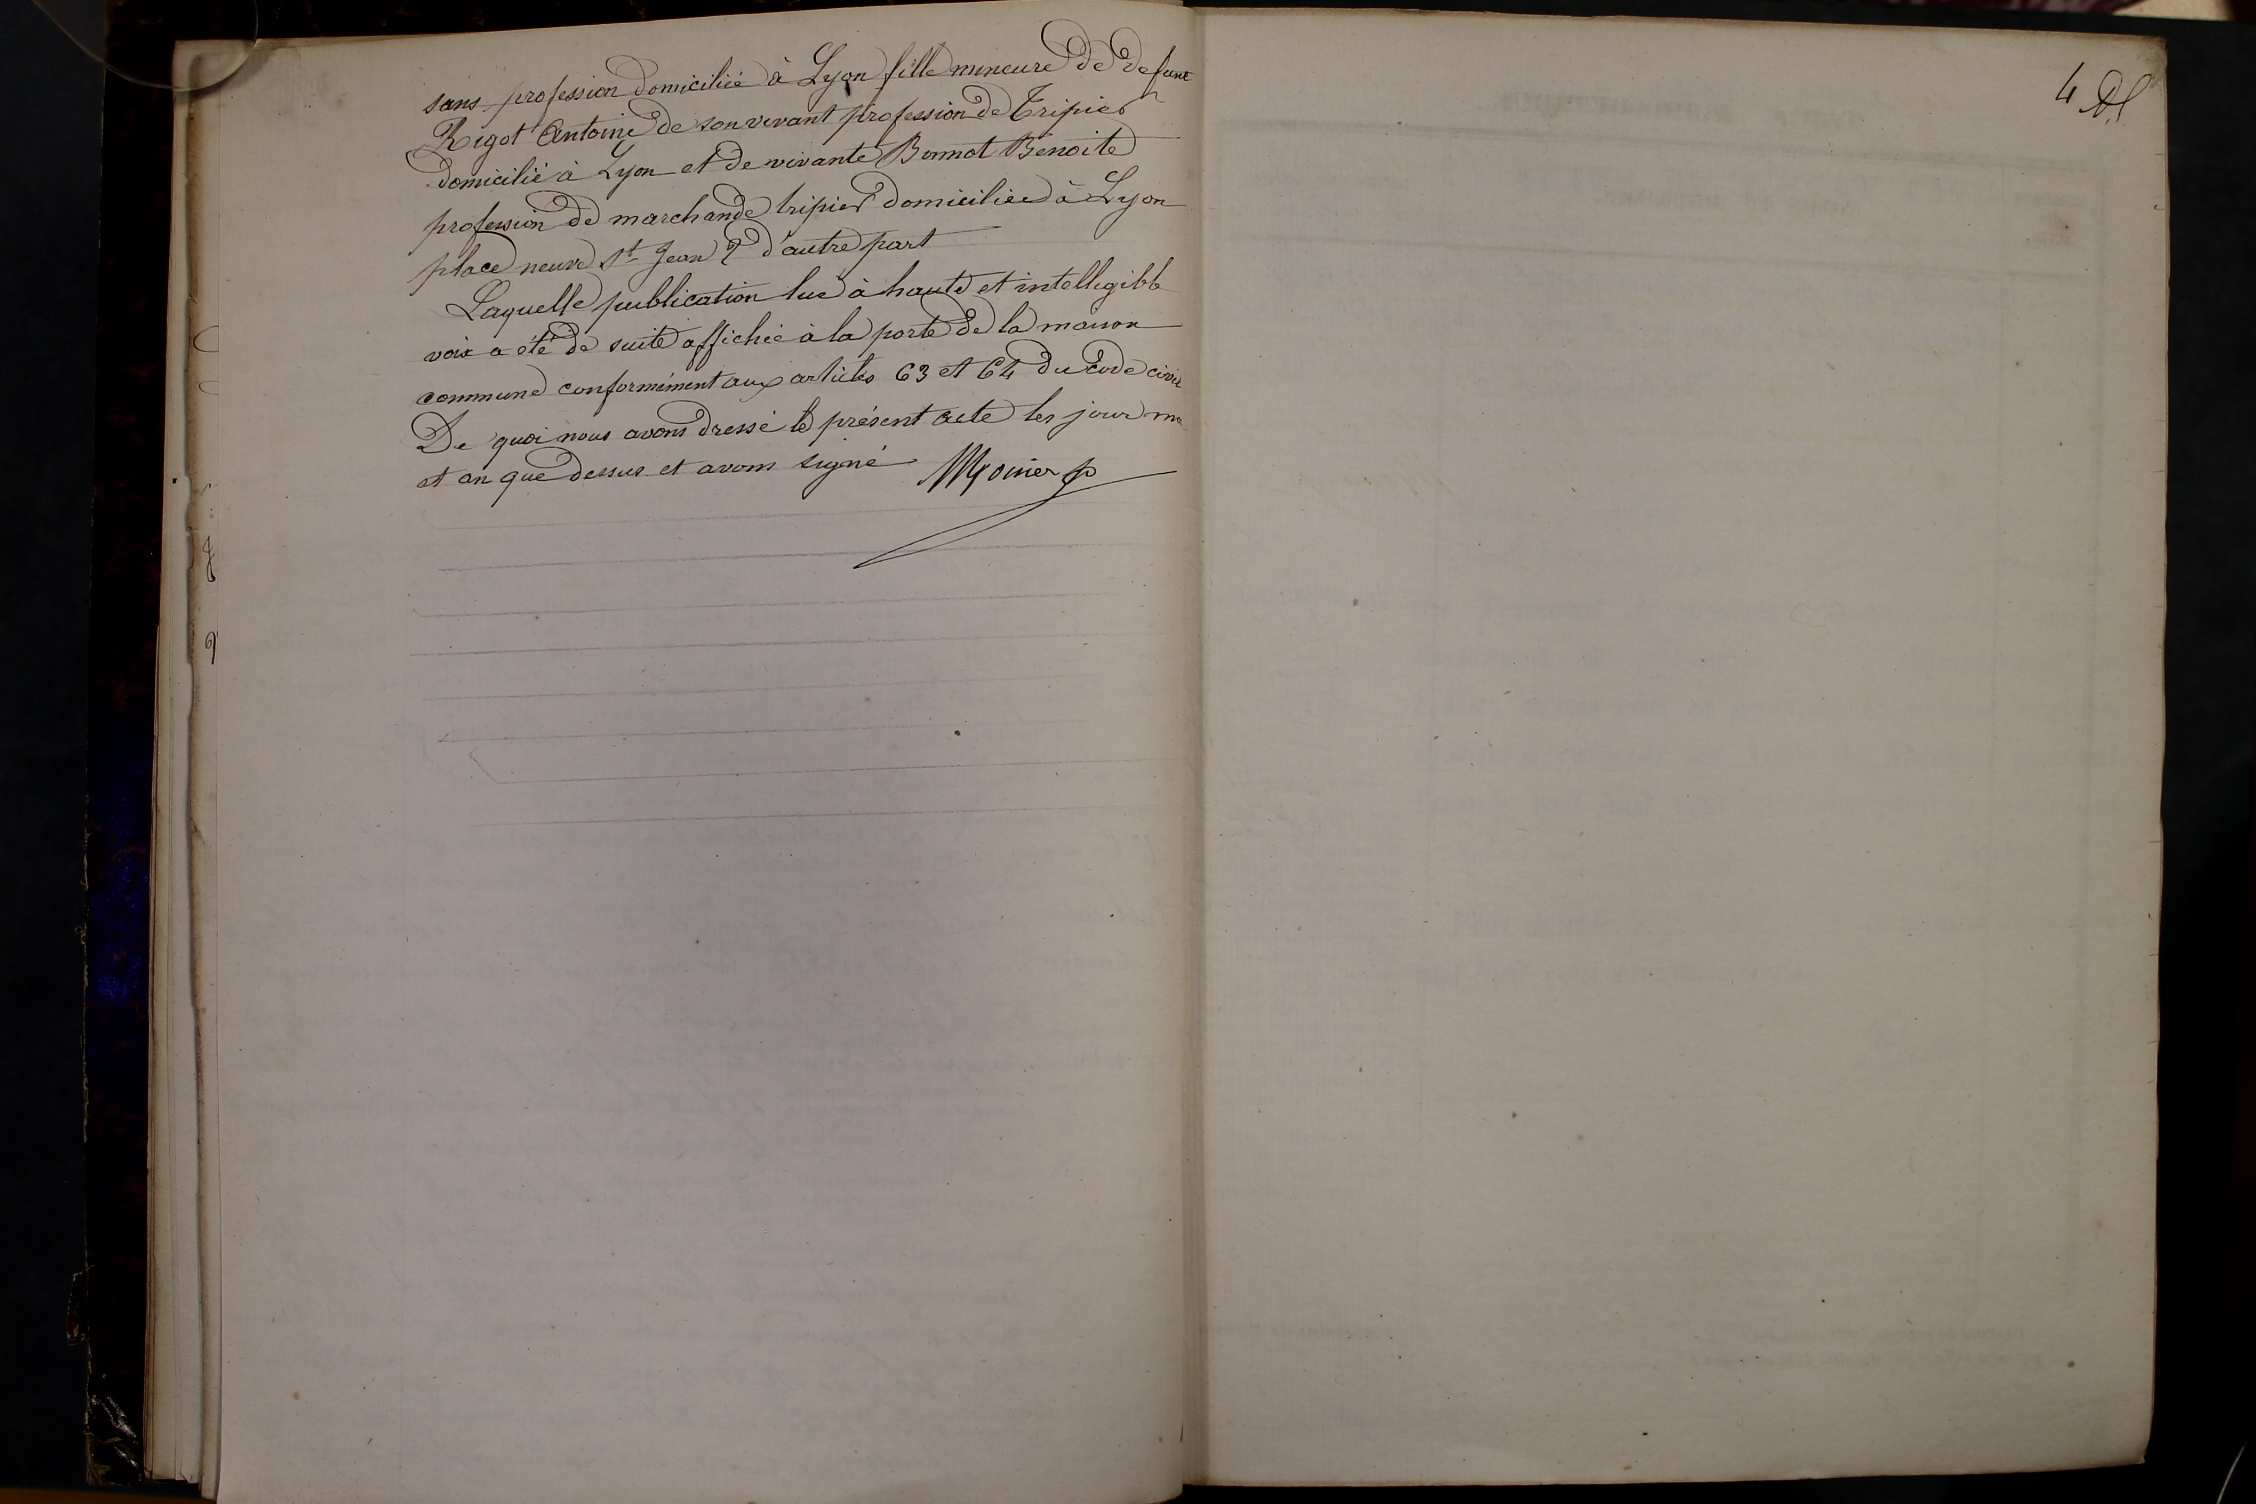 sans profession domiciliée à Lyon fille mineure de defunt
Rigot Antoine de son vivant profession de Tripier
domicilié à Lyon et de vivante Bonnot Benoite
profession de marchande tripier domiciliée à Lyon
place neuve St Jean 2 d'autre part
Laquelle publication lue à haute et intelligible
voix a été de suite affichée à la porte de la maison
commune conformément aux articles 63 et 64 du Code civil
De quoi nous avons dressé le présent acte les jour
et an que dessus et avons signé
4